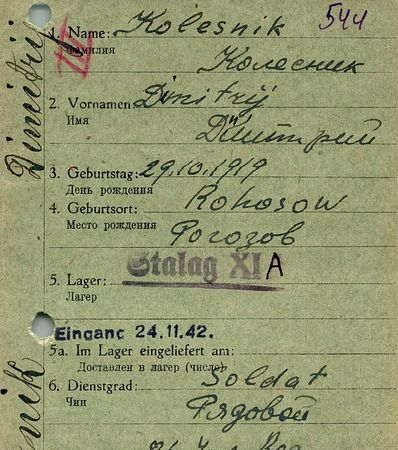 544
1. Name: Kolesnik
Фамилия
Колесник
2. Vornamen Dmitrij
Имя
Дмитрий
3. Geburtstag: 29.10.1919
День рождения
4. Geburtsort: Rohosow
Место рождения
Рогозов
Stalag XI A
5. Lager:
Лагер
Eingang 24.11.42.
5a. Im Lager eingeliefert am:
Доставлен в лагер (число)
6. Dienstgrad: Soldat
Чин
Рядовой
Dimitrij
nik